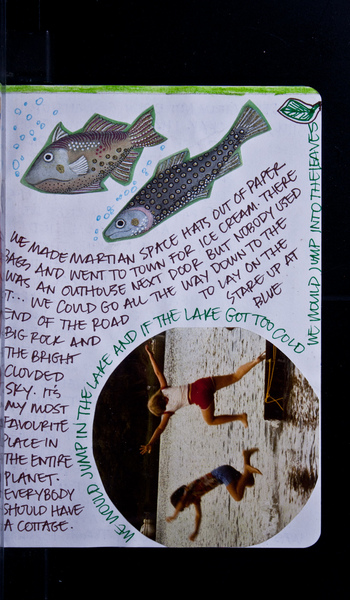 WE MADE MARTIAN SPACE HATS OUT OF PAPER
BAGS AND WENT TO TOWN FOR ICE CREAM. THERE
WAS AN OUTHOUSE NEXT DOOR BUT NOBODY USED
IT... WE COULD GO ALL THE WAY DOWN TO THE
END OF THE ROAD TO LAY ON THE
BIG ROCK AND STARE UP AT
THE BRIGHT BLUE
CLOUDED
SKY. IT'S
MY MOST
FAVOURITE
PLACE IN
THE ENTIRE
PLANET.
EVERYBODY
SHOULD HAVE
A COTTAGE.
WE WOULD JUMP IN THE LAKE AND IF THE LAKE GOT TOO COLD
WE WOULD JUMP INTO THE LEAVES